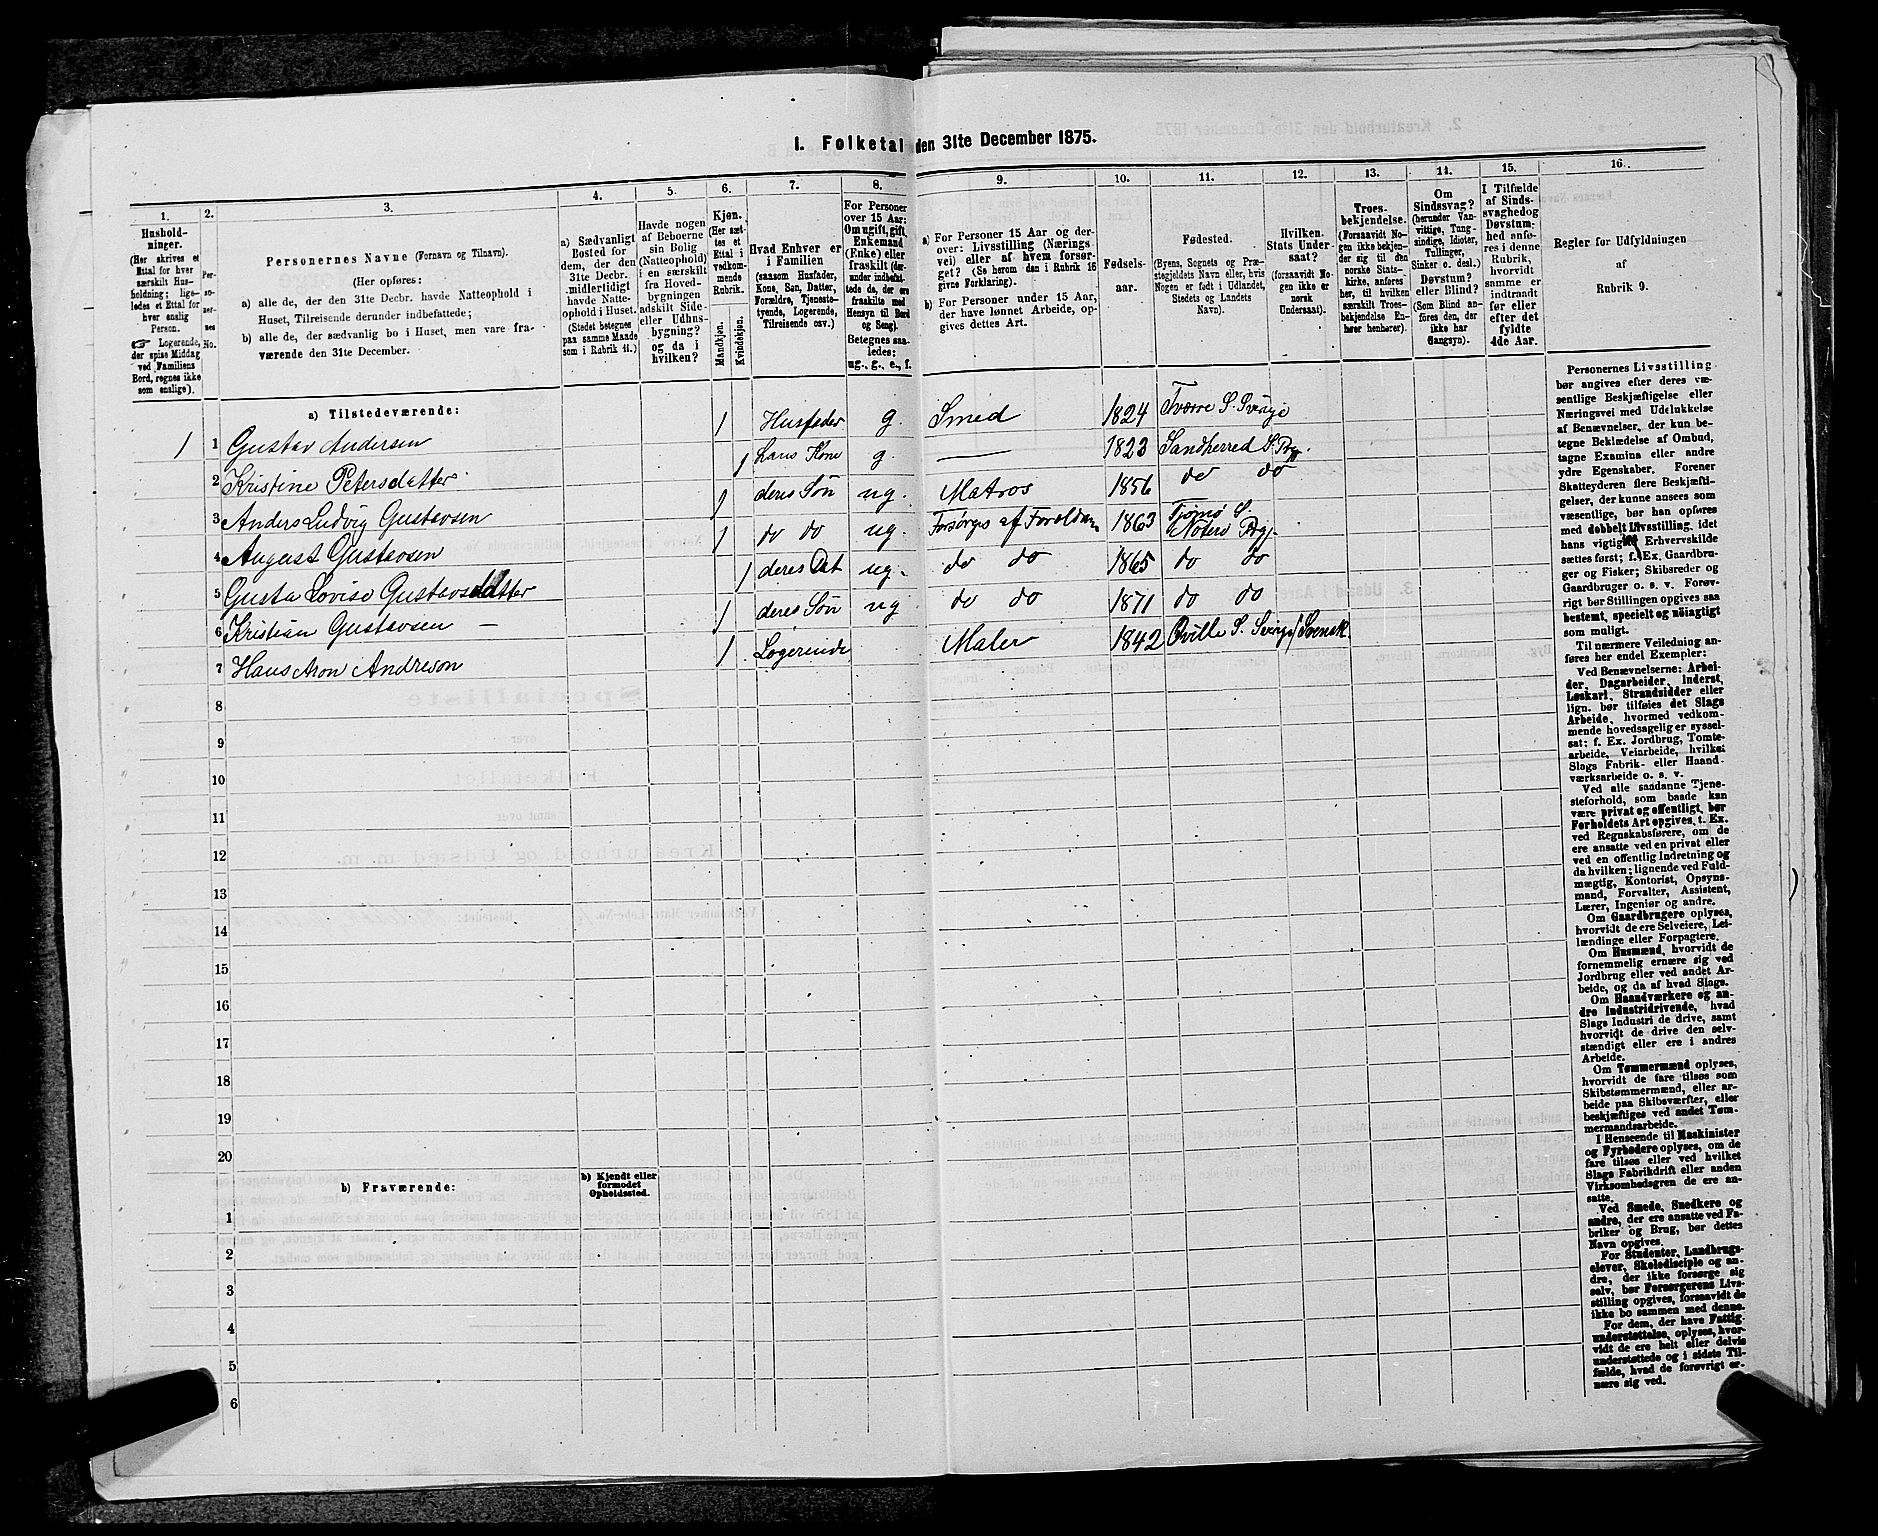 1. Folketal den 31te December 1875.
1.
2.
3.
4.
5.
6.
7.
8.
9.
10.
11.
12.
13.
14.
15.
16.
Hushold-
ninger.
(Her skrives et
Ettal for hver
særskilt Hus-
holdning; lige-
ledes et Ettal for
hver enslig
Person.
☞ Logerende,
der spise Middag
ved Familiens
Bord, regnes ikke
som enslige).
Per-
so-
ner-
nes
No.
Personernes Navne (Fornavn og Tilnavn).
(Her opføres:
a) alle de, der den 31te Decbr. havde Natteophold i
Huset, Tilreisende derunder indbefattede;
b) alle de, der sædvanlig bo i Huset, men vare fra-
værende den 31te December.
a) Sædvanligt
Bosted for
dem, der den
31te Decbr.
midlertidigt
havde Natte-
ophold i Huset.
(Stedet betegnes
paa samme Maade
som i Rubrik 11.)
Havde nogen
af Beboerne
sin Bolig
(Natteophold)
i en særskilt
fra Hoved-
bygningen
adskilt Side-
eller Udhus-
bygning?
og da i
hvilken?
Kjøn.
(Her sæt-
tes et
Ettal i
vedkom-
mende
Rubrik.
Mandkjøn.
Kvindekjøn.
Hvad Enhver er
i Familien
(saasom Husfader,
Kone, Søn, Datter,
Forældre, Tjeneste-
tyende, Logerende,
Tilreisende osv.)
For Personer
over 15 Aar:
Om ugift, gift,
Enkemand
(Enke) eller
fraskilt (der-
under indbefat-
tede de, der ere
fraskilte med
Hensyn til Bord
og Seng).
Betegnes saa-
ledes:
ug., g., e., f.
a) For Personer 15 Aar og der-
over: Livsstilling (Nærings-
vei) eller af hvem forsør-
get? (Se herom den i Rubrik 16
givne Forklaring).
b) For Personer under 15 Aar,
der have lønnet Arbeide, op-
gives dettes Art.
Fødsels-
aar.
Fødested.
(Byens, Sognets og Præ-
stegjeldets Navn eller, hvis
Nogen er født i Udlandet,
Stedets og Landets
Navn).
Hvilken
Stats Under-
saat?
(forsaavidt No-
gen ikke er
norsk
Undersaat).
Troes-
bekjendelse.
(Forsaavidt No-
gen ikke bekjen-
der sig til den
norske Stats-
kirke, anføres
her, til hvilken
særskilt Troes-
bekjendelse En-
hver henhører).
Om
Sindssvag?
(herunder Van-
vittige, Tung-
sindige, Idioter,
Tullinger,
Sinker o. desl.)
Døvstum?
eller Blind?
(Som Blind an-
føres den, der
ikke har
Gangsyn).
I Tilfælde
af Sinds-
svaghed og
Døvstum-
hed anfø-
res i denne
Rubrik,
hvorvidt
samme er
indtraadt
før eller
efter det
fyldte
4de Aar.
Regler for Udfyldningen
af
Rubrik 9.
a) Tilstedeværende:
1 1 Gustav Andersen 1 Husfader g. Smed 1824 Tværre S. Sverige
2 Kristine Petersdatter 1 hans Kone g. — 1823 Sandherred S. Prgj.
3 Anders Ludvig Gustavsen 1 deres Søn ug. Matros 1856 do do
4 August Gustavsen 1 do do ug. Forsørges af Forældrene 1863 Tjømø S. Nøterø Prgj.
5 Gusta Lovise Gustavsdatter 1 deres Dat ug. do do 1865 do do
6 Kristian Gustavsen — 1 deres Søn ug do do 1871 do do
7 Hans Aron Andreson 1 Logerende Maler 1842 Qville S. Sverige / Svensk.
8
9
10
11
12
13
14
15
16
17
18
19
20
b) Fraværende:
b) Kjendt eller
formodet
Opholdssted.
1
2
3
4
5
6
Personernes Livsstilling
bør angives efter deres væ-
sentlige Beskjæftigelse eller
Næringsvei med Udelukkelse
af Benævnelser, der kun be-
tegne Beklædelse af Ombud,
tagne Examina eller andre
ydre Egenskaber. Forener
Skatteyderen flere Beskjæfti-
gelser, der kunne ansees som
væsentlige, bør han opføres
med dobbelt Livsstilling, idet
hans vigtigste Erhvervskilde
sættes først; f. Ex. Gaardbru-
ger og Fisker; Skibsreder og
Gaardbruger o. s. v. Forøv-
rigt bør Stillingen opgives saa
bestemt, specielt og nöiagtigt
som muligt.
Til nærmere Veiledning an-
føres her endel Exempler:
Ved Benævnelserne: Arbei-
der, Dagarbeider, Inderst,
Løskarl, Strandsidder eller
lign. bør tilføies det Slags
Arbeide, hvormed vedkom-
mende hovedsagelig er syssel-
sat; f. Ex. Jordbrug, Tomte-
arbeide, Veiarbeide, hvilket
Slags Fabrik- eller Haand-
værksarbeide o. s. v.
Ved alle saadanne Tjene-
steforhold, som baade kan
være privat og offentligt, bør
Forholdets Art opgives, t. Ex.
ved Regnskabsførere, om de
ere ansatte ved en privat eller
ved en offentlig Indretning og
da hvilken; lignende ved Fuld-
mægtig, Kontorist, Opsyns-
mand, Forvalter, Assistent,
Lærer, Ingeniør og andre.
Om Gaardbrugere oplyses,
hvorvidt de ere Selveiere, Lei-
lændinge eller Forpagtere.
Om Husmænd, hvorvidt de
fornemmelig ernære sig ved
Jordbrug eller ved andet Ar-
beide, og da af hvad Slags.
Om Haandværkere og an-
dre Industridrivende, hvad
Slags Industri de drive, samt
hvorvidt de drive den selv-
stændigt eller ere i andres
Arbeide.
Om Tømmermænd oplyses,
hvorvidt de fare tilsøs som
Skibstømmermænd, eller ar-
beide paa Skibsværfter, eller
beskjæftiges ved andet Tøm-
mermandsarbeide.
I Henseende til Maskinister
og Fyrbødere oplyses, om de
fare tilsøs eller ved hvilket
Slags Fabrikdrift eller anden
Virksomhedsgren de ere an-
satte.
Ved Smede, Snedkere og
andre, der ere ansatte ved Fa-
briker og Brug, bør dettes
Navn opgives.
For Studenter, Landbrugs-
elever, Skoledisciple og an-
dre, der ikke forsørge sig
selv, bør Forsørgerens Livs-
stilling opgives, forsaavidt de
ikke bo sammen med denne.
For dem, der have Fattig-
understøttelse, oplyses, hvor-
vidt de ere helt eller delvis
understøttede og i sidste Til-
fælde, hvad de forøvrigt er-
nære sig ved.